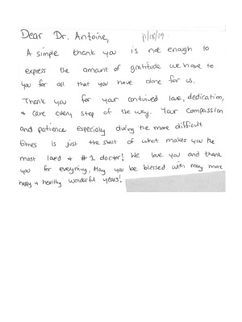 Dear Dr. Antoine,
A simple thank you is not enough to
express the amount of gratitude we have to
you for all that you have done for us.
Thank you for your continued love, dedication,
& care every step of the way. Your compassion
and patience especially during the more difficult
times is just the start of what makes you the
most loved & #1 doctor! We love you and thank
you for everything. May you be blessed with many more
happy + healthy wonderful years!